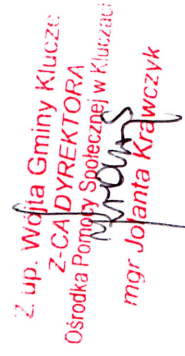 Z up. Wójta Gminy Klucze
Z-CA DYREKTORA
Ośrodka Pomocy Społecznej w Kluczach
mgr Jolanta Krawczyk